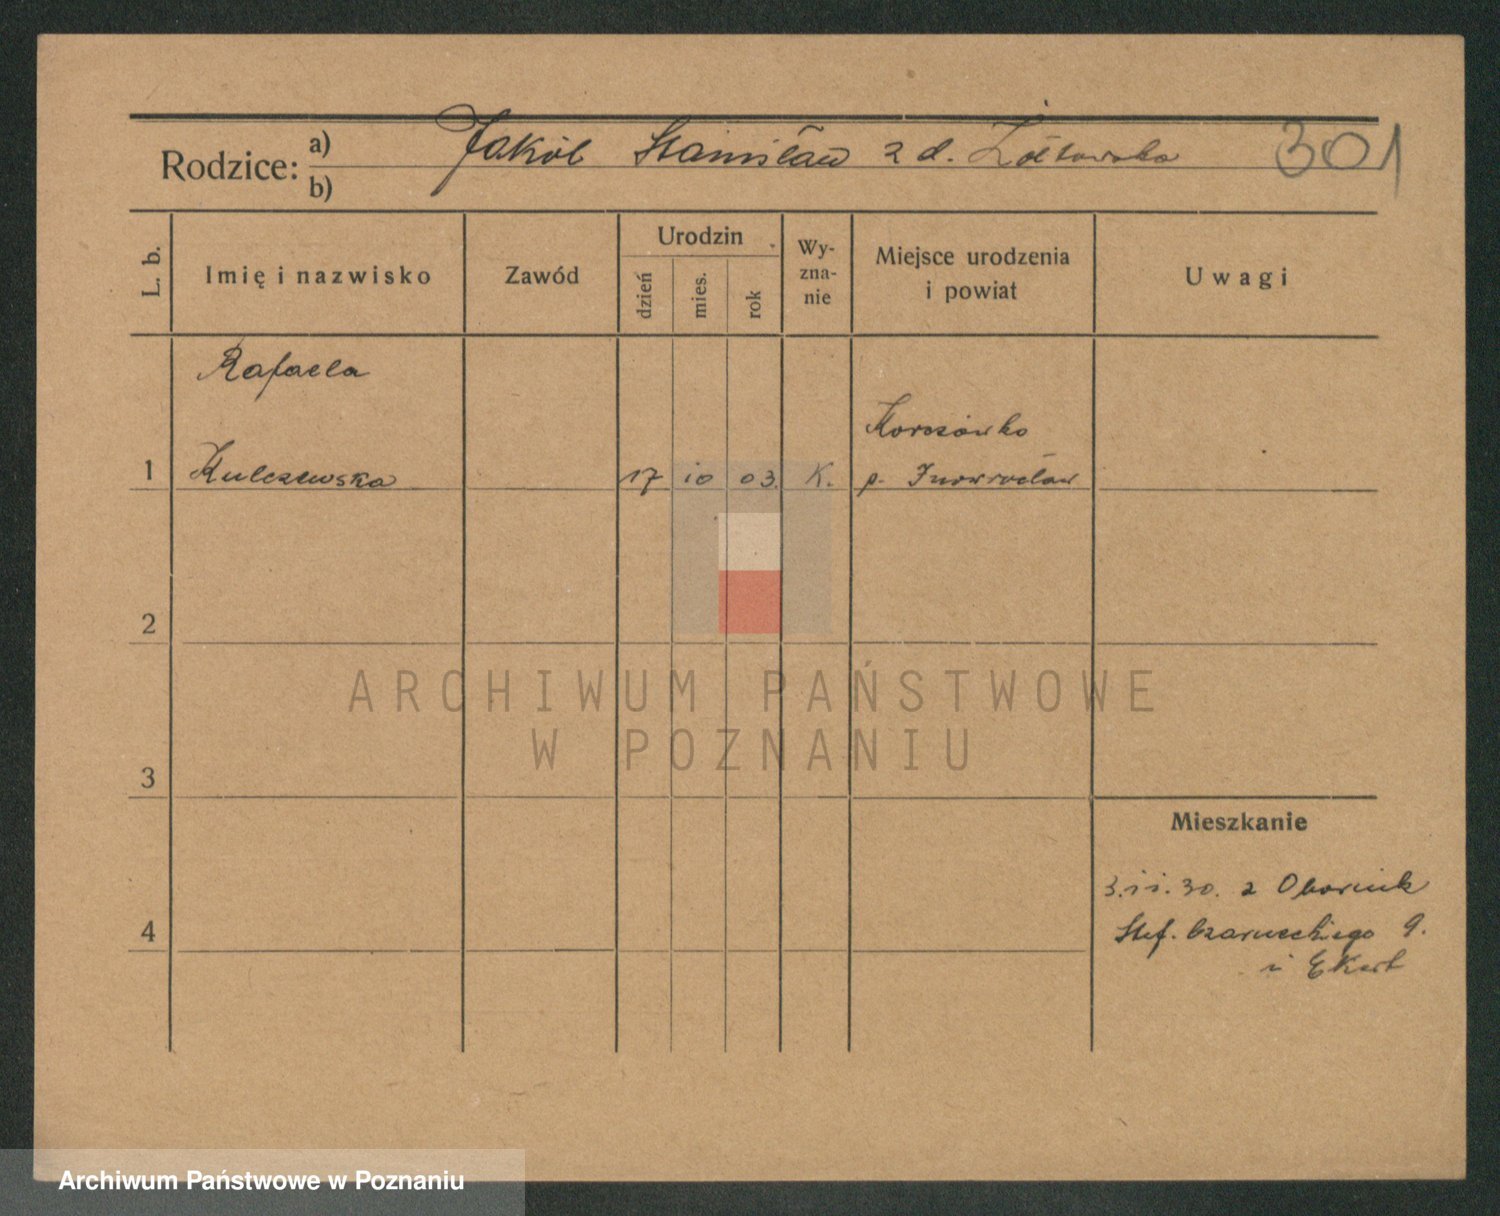 Rodzice: a) Jakób Stanisław z d. Żółtowska 301
b)
L. b.
Imię i nazwisko
Zawód
Urodzin
dzień
mies.
rok
Wy-
zna-
nie
Miejsce urodzenia
i powiat
Uwagi
Rafaela
1 Kulczewska 17 10 03. K.
p. Inowrocław
2
3
4
Mieszkanie
3.11.30. z Obornik
Stef. Czarneckiego 9.
ARCHIWUM PAŃSTWOWE
W POZNANIU
Archiwum Państwowe w Poznaniu